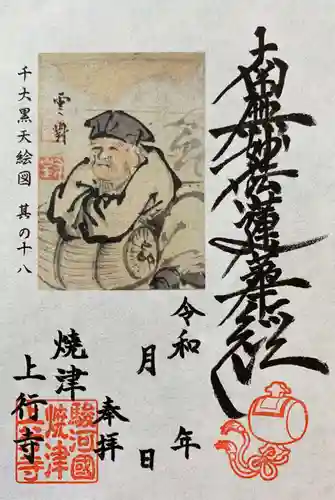 南無妙法蓮華経
令和 年
月 日
奉拝
焼津
上行寺
駿河國
焼津
千大黒天絵図 其の十八